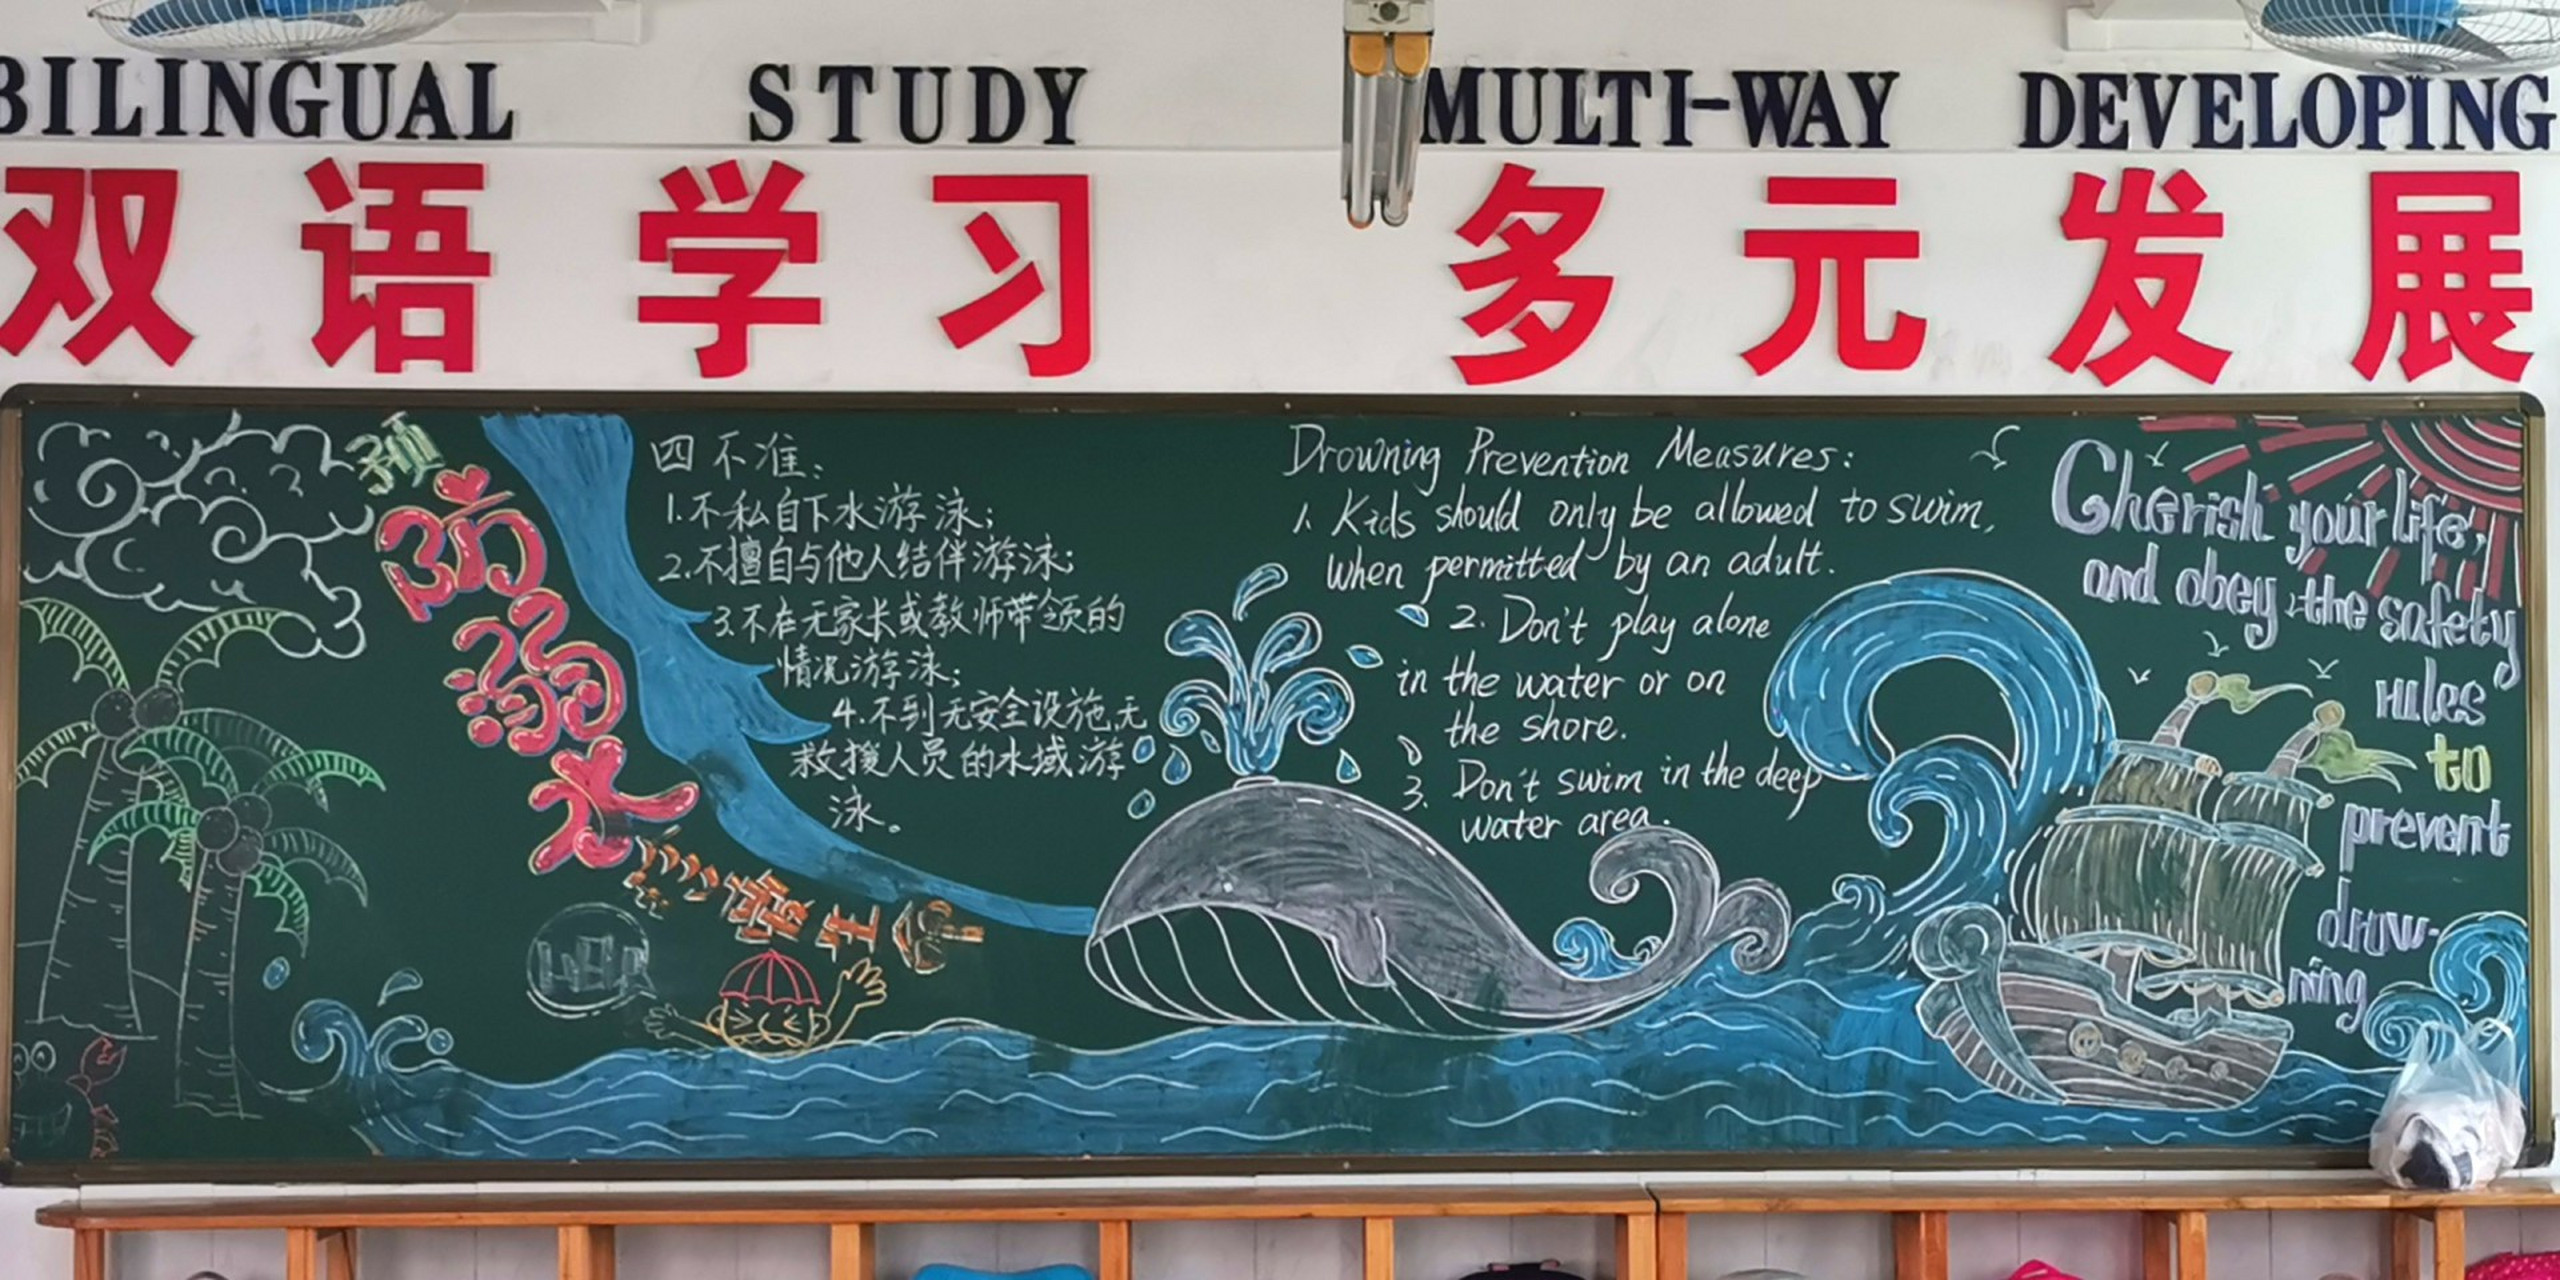 BILINGUAL STUDY MULTI-WAY DEVELOPING
双语学习 多元发展
预
防溺水
心常生命
四不准:
1.不私自下水游泳;
2.不擅自与他人结伴游泳;
3.不在无家长或教师带领的
情况游泳;
4.不到无安全设施,无
救援人员的水域游
泳。
Drowning Prevention Measures:
1. Kids should only be allowed to swim,
when permitted by an adult.
2. Don't play alone
in the water or on
the shore.
3. Don't swim in the deep
water area.
Cherish your life,
and obey the safety
rules
to
prevent
drow-
ning
HELP